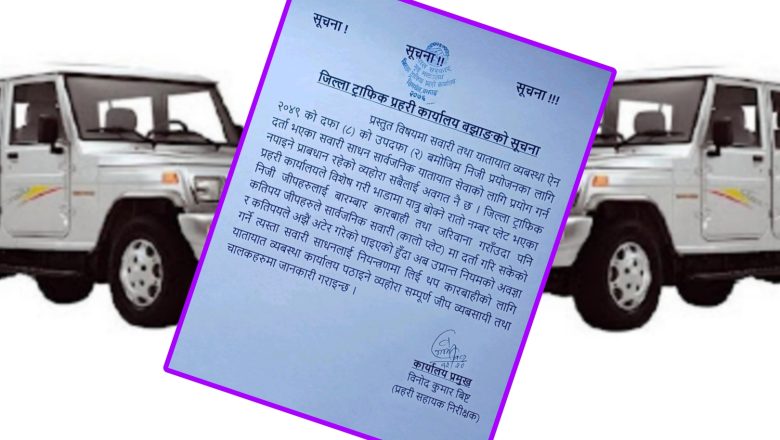 सूचना !
सूचना !!
सूचना !!!
जिल्ला ट्राफिक प्रहरी कार्यालय बझाङको सूचना
प्रस्तुत विषयमा सवारी तथा यातायात व्यबस्था ऐन
२०४९ को दफा (८) को उपदफा (२) बमोजिम निजी प्रयोजनका लागि
दर्ता भएका सवारी साधन सार्वजनिक यातायात सेवाको लागि प्रयोग गर्न
नपाइने प्राबधान रहेको व्यहोरा सबैलाई अवगत नै छ । जिल्ला ट्राफिक
प्रहरी कार्यालयले विशेष गरी भाडामा यात्रु बोक्ने रातो नम्बर प्लेट भएका
निजी जीपहरुलाई बारम्बार कारबाही, तथा जरिवाना गराउँदा पनि
कतिपय जीपहरुले सार्वजनिक सवारी (कालो प्लेट) मा दर्ता गरि सकेको
र कतिपयले अझैं अटेर गरेको पाइएको हुँदा अब उप्रान्त नियमको अवज्ञा
गर्ने त्यस्ता सवारी साधनलाई नियन्त्रणमा लिई थप कारबाहीको लागि
यातायात व्यबस्था कार्यालय पठाइने व्यहोरा सम्पूर्ण जीप व्यबसायी तथा
चालकहरुमा जानकारी गराइन्छ ।
कार्यालय प्रमुख
विनोद कुमार बिष्ट
(प्रहरी सहायक निरीक्षक)